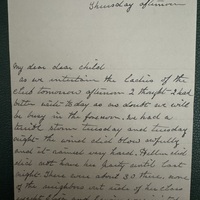 Thursday afternoon
My dear dear child
as we entertain the ladies of the
club tomorrow afternoon I thought I had
better write today as no doubt we will
be busy in the forenoon. We had a
storm Tuesday and Tuesday
night the wind did blow awfully
and it rained very hard. Hellen did
did not have his party until last
night. There were about 30 there. Some
of the neighbors out side of his class